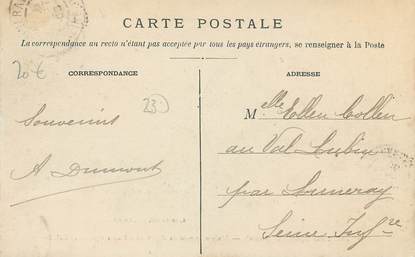 CARTE POSTALE
La correspondance au recto n'étant pas acceptée par tous les pays étrangers, se renseigner à la Poste
20€
CORRESPONDANCE
ADRESSE
23
Souvenirs
A Dumont
Melle Ellen Collen
au Val Lubin
par Luneray
Seine Infre